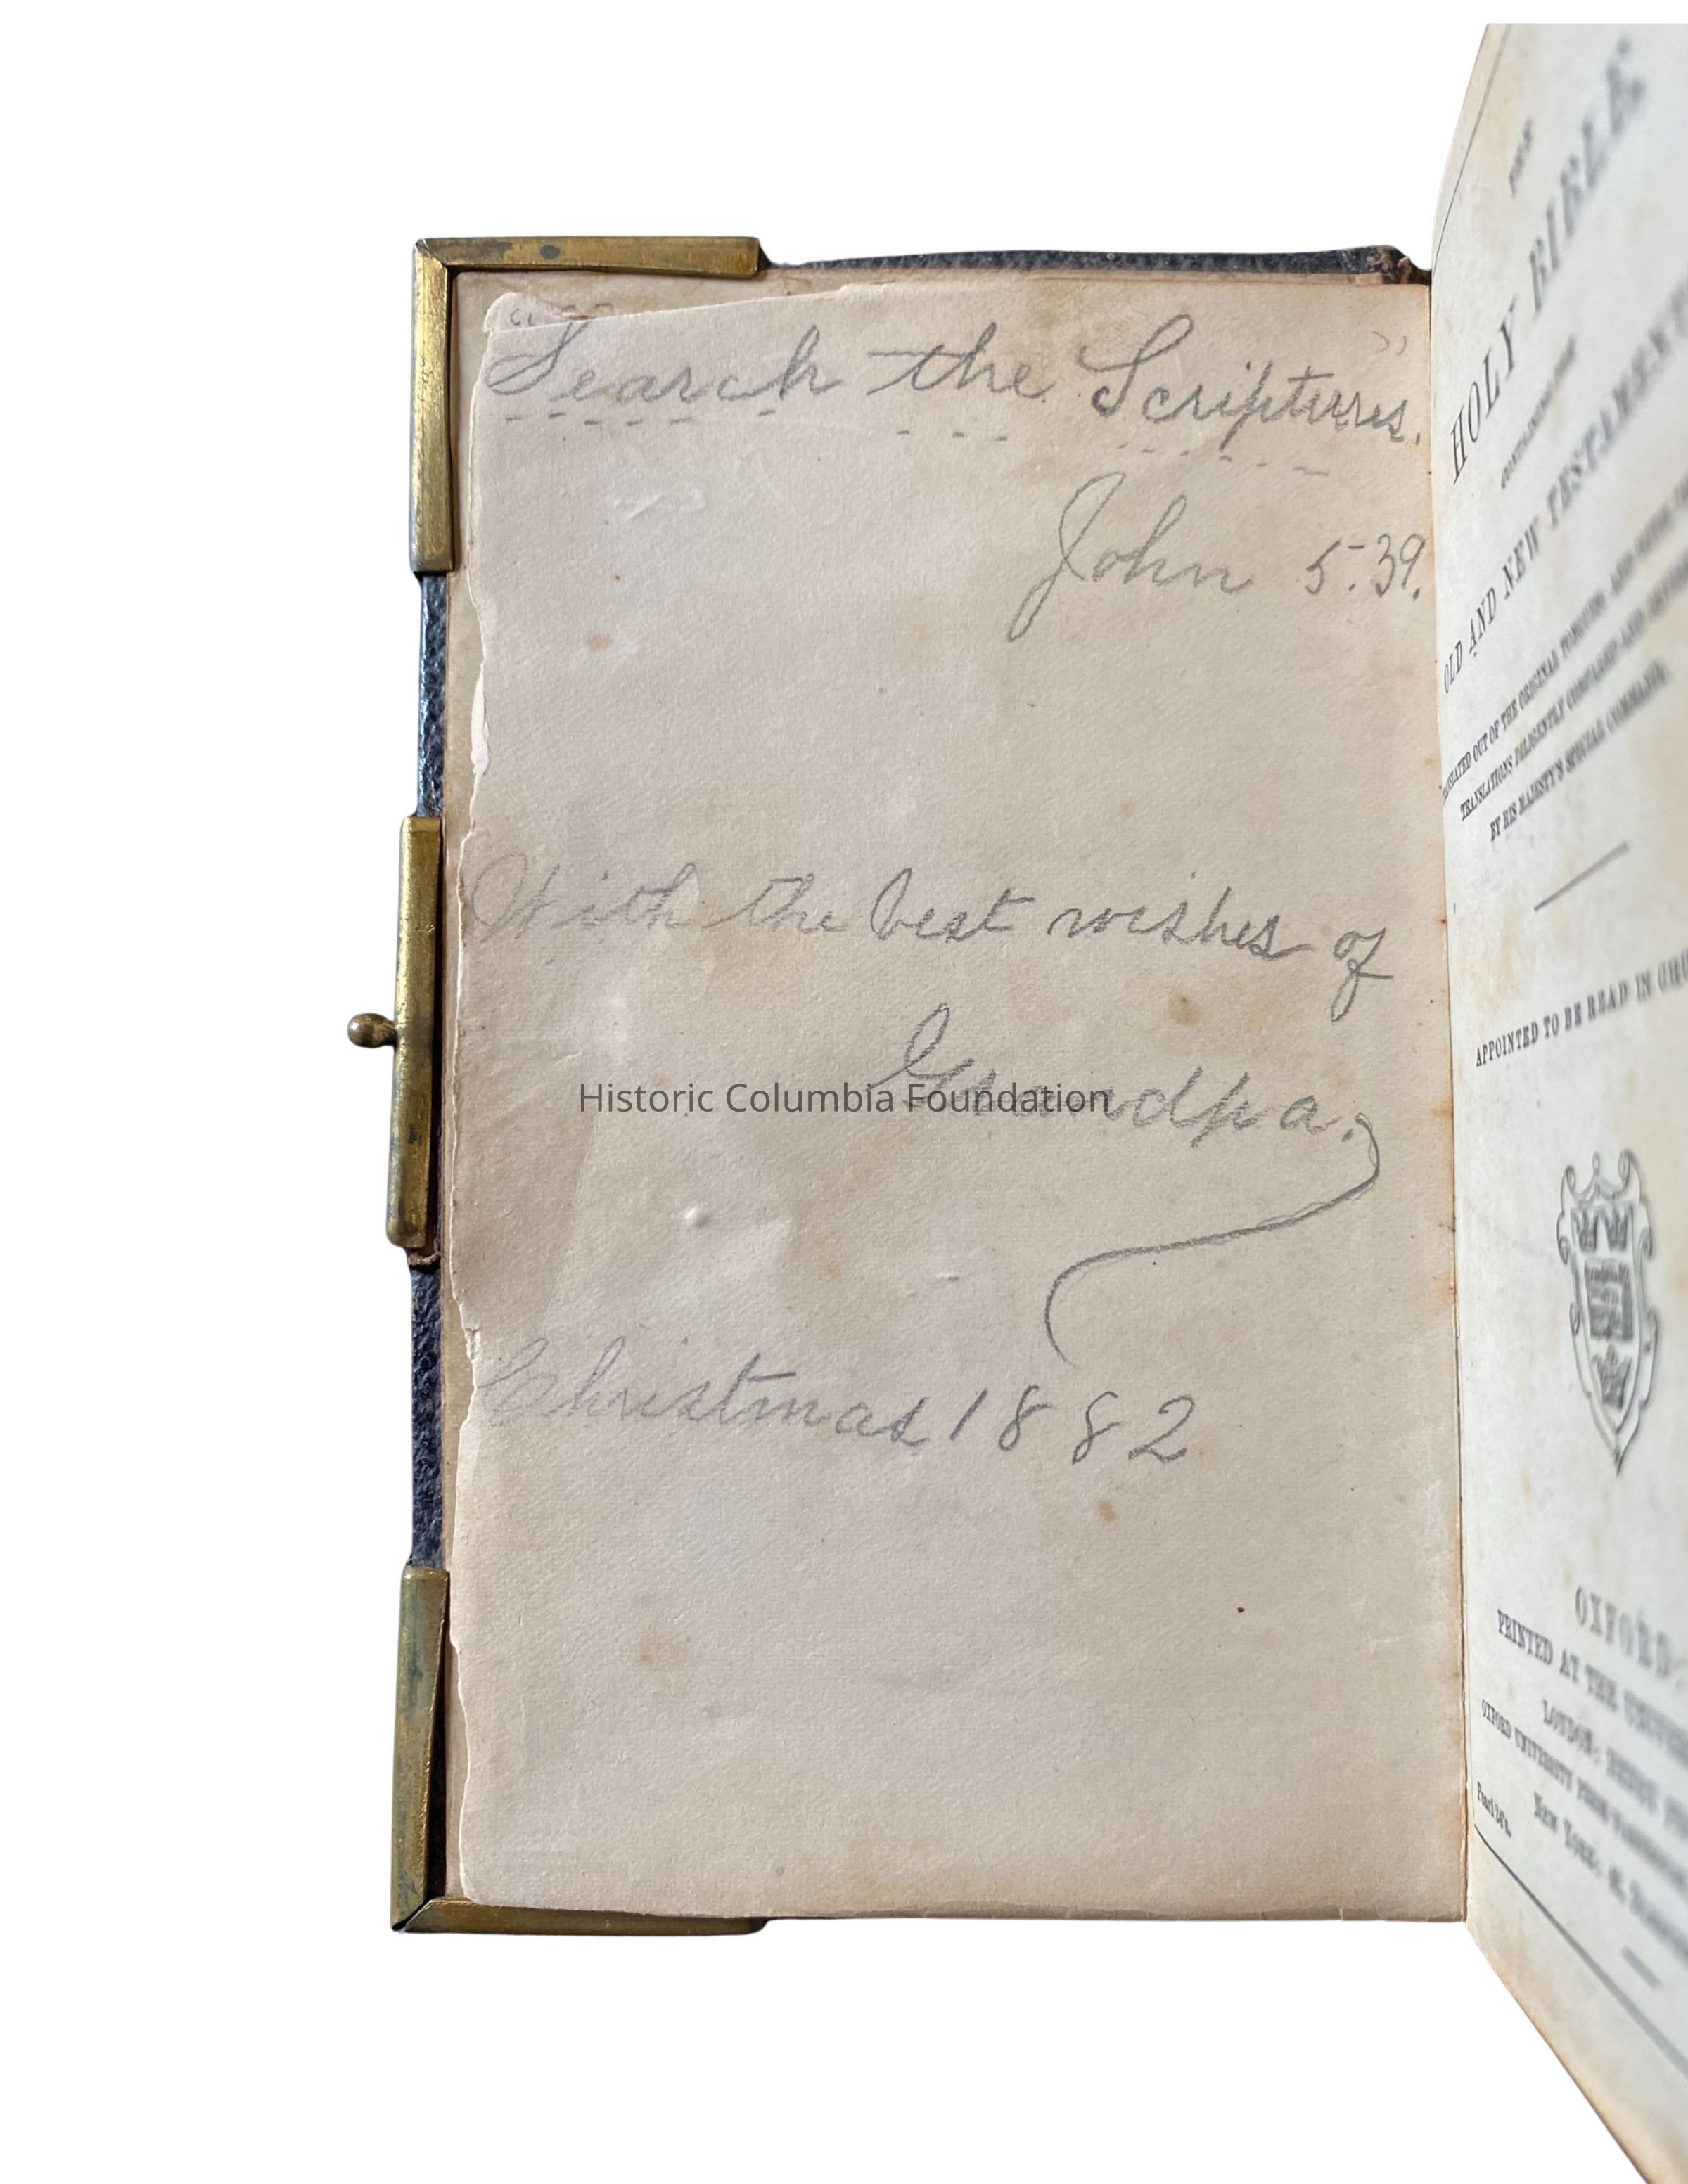 Search the Scriptures.
John 5.39.
With the best wishes of
Grandpa.
Christmas 1882
Historic Columbia Foundation
THE
HOLY BIBLE
CONTAINING THE
OLD AND NEW TESTAMENTS
OUT OF THE ORIGINAL TONGUES AND WITH
TRANSLATIONS DILIGENTLY COMPARED AND
BY HIS MAJESTY'S SPECIAL COMMAND
APPOINTED TO BE READ IN
OXFORD
PRINTED AT THE
LONDON: HENRY
OXFORD UNIVERSITY PRESS
NEW YORK: